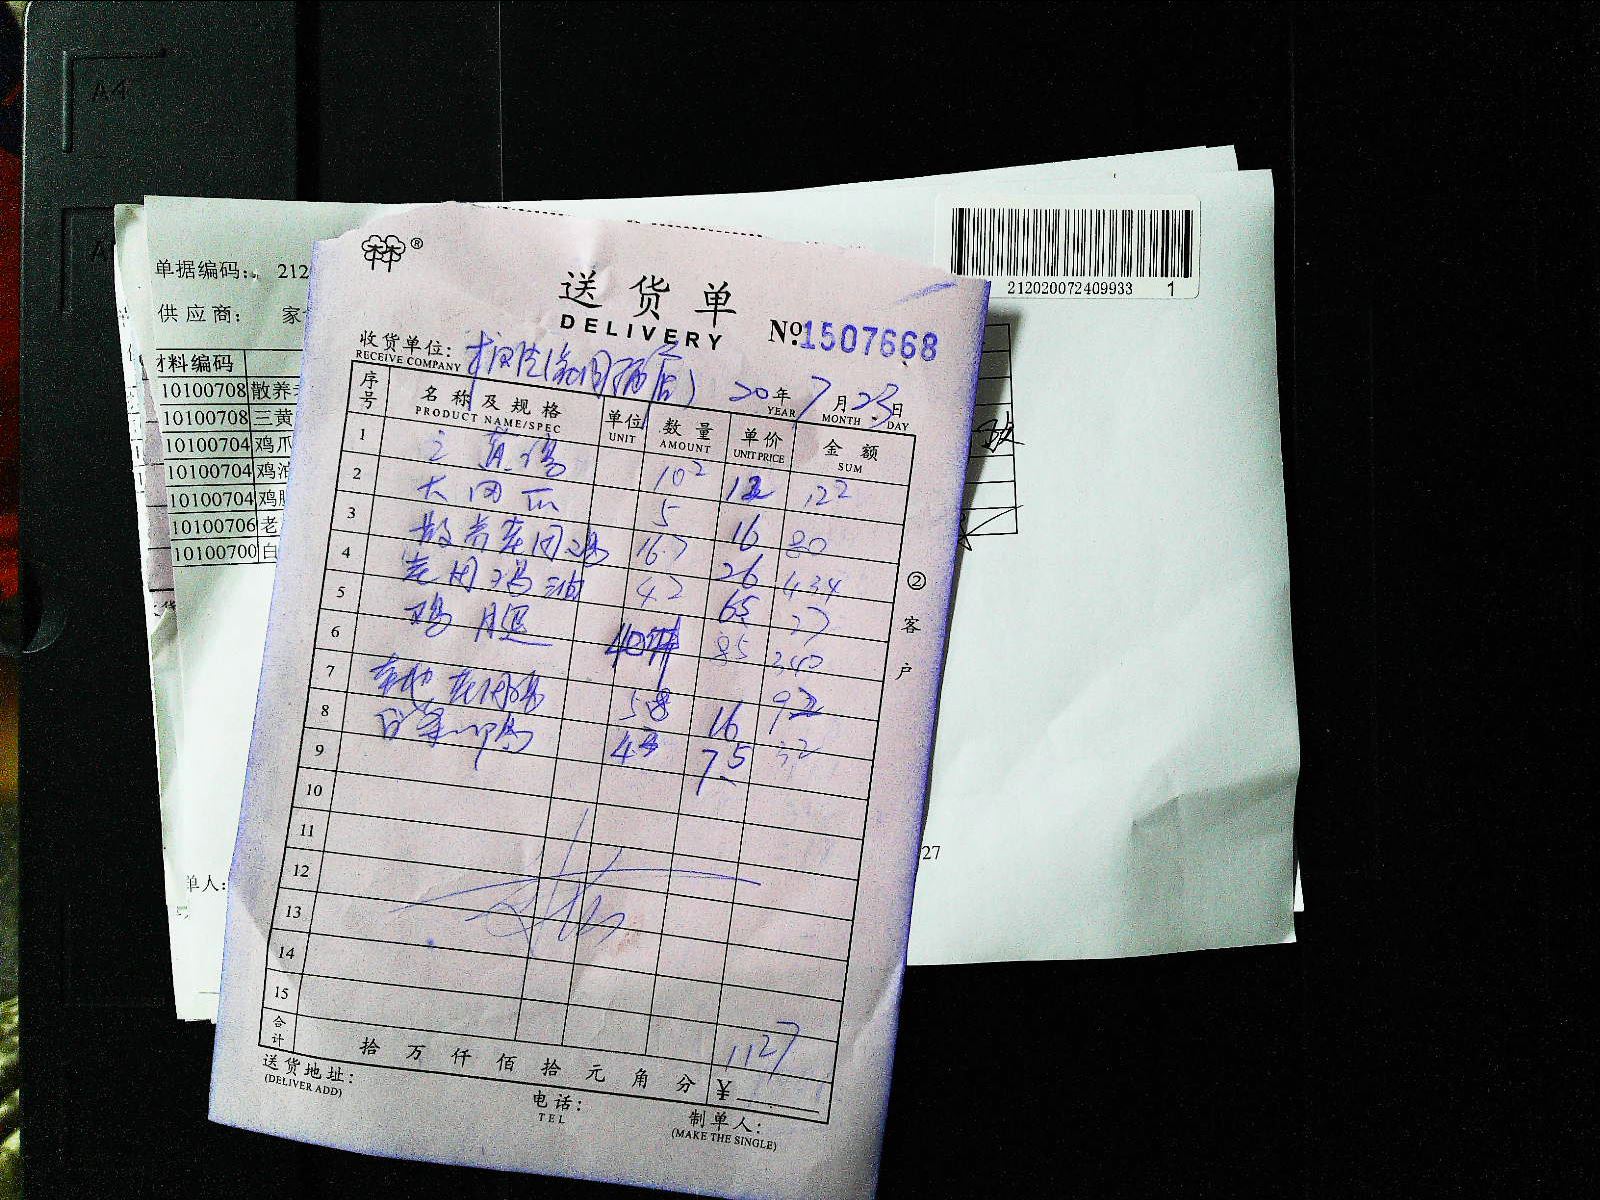 A4
单据编码: 212
供 应 商: 家
材料编码
10100708 散养
10100708 三黄
10100704 鸡爪
10100704 鸡油
10100704 鸡腿
10100706 老
10100700 白
单人:
212020072409933 1
27
®
送货单
DELIVERY
№1507668
收货单位:
RECEIVE COMPANY
20年7月23日
YEAR MONTH DAY
序号 名称及规格 单位 数量 单价 金额
PRODUCT NAME/SPEC UNIT AMOUNT UNIT PRICE SUM
1 三黄鸡 10² 12 122
2 大凤爪 5 16 80
3 散养老母鸡 16.7 26 434
4 老母鸡油 4.2 65 27
5 鸡腿 85 340
6
7 老母鸡 5.8 16 92
8 白条 4.3 7.5 32
9
10
11
12
13
14
15
1127
合计 拾 万 仟 佰 拾 元 角 分 ¥
送货地址:
(DELIVER ADD)
电话:
TEL
制单人:
(MAKE THE SINGLE)
② 客户